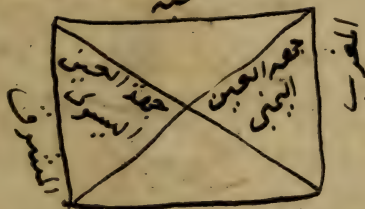 المغرب
جهة العين
اليمنى
جهة العين
اليسرى
المشرق